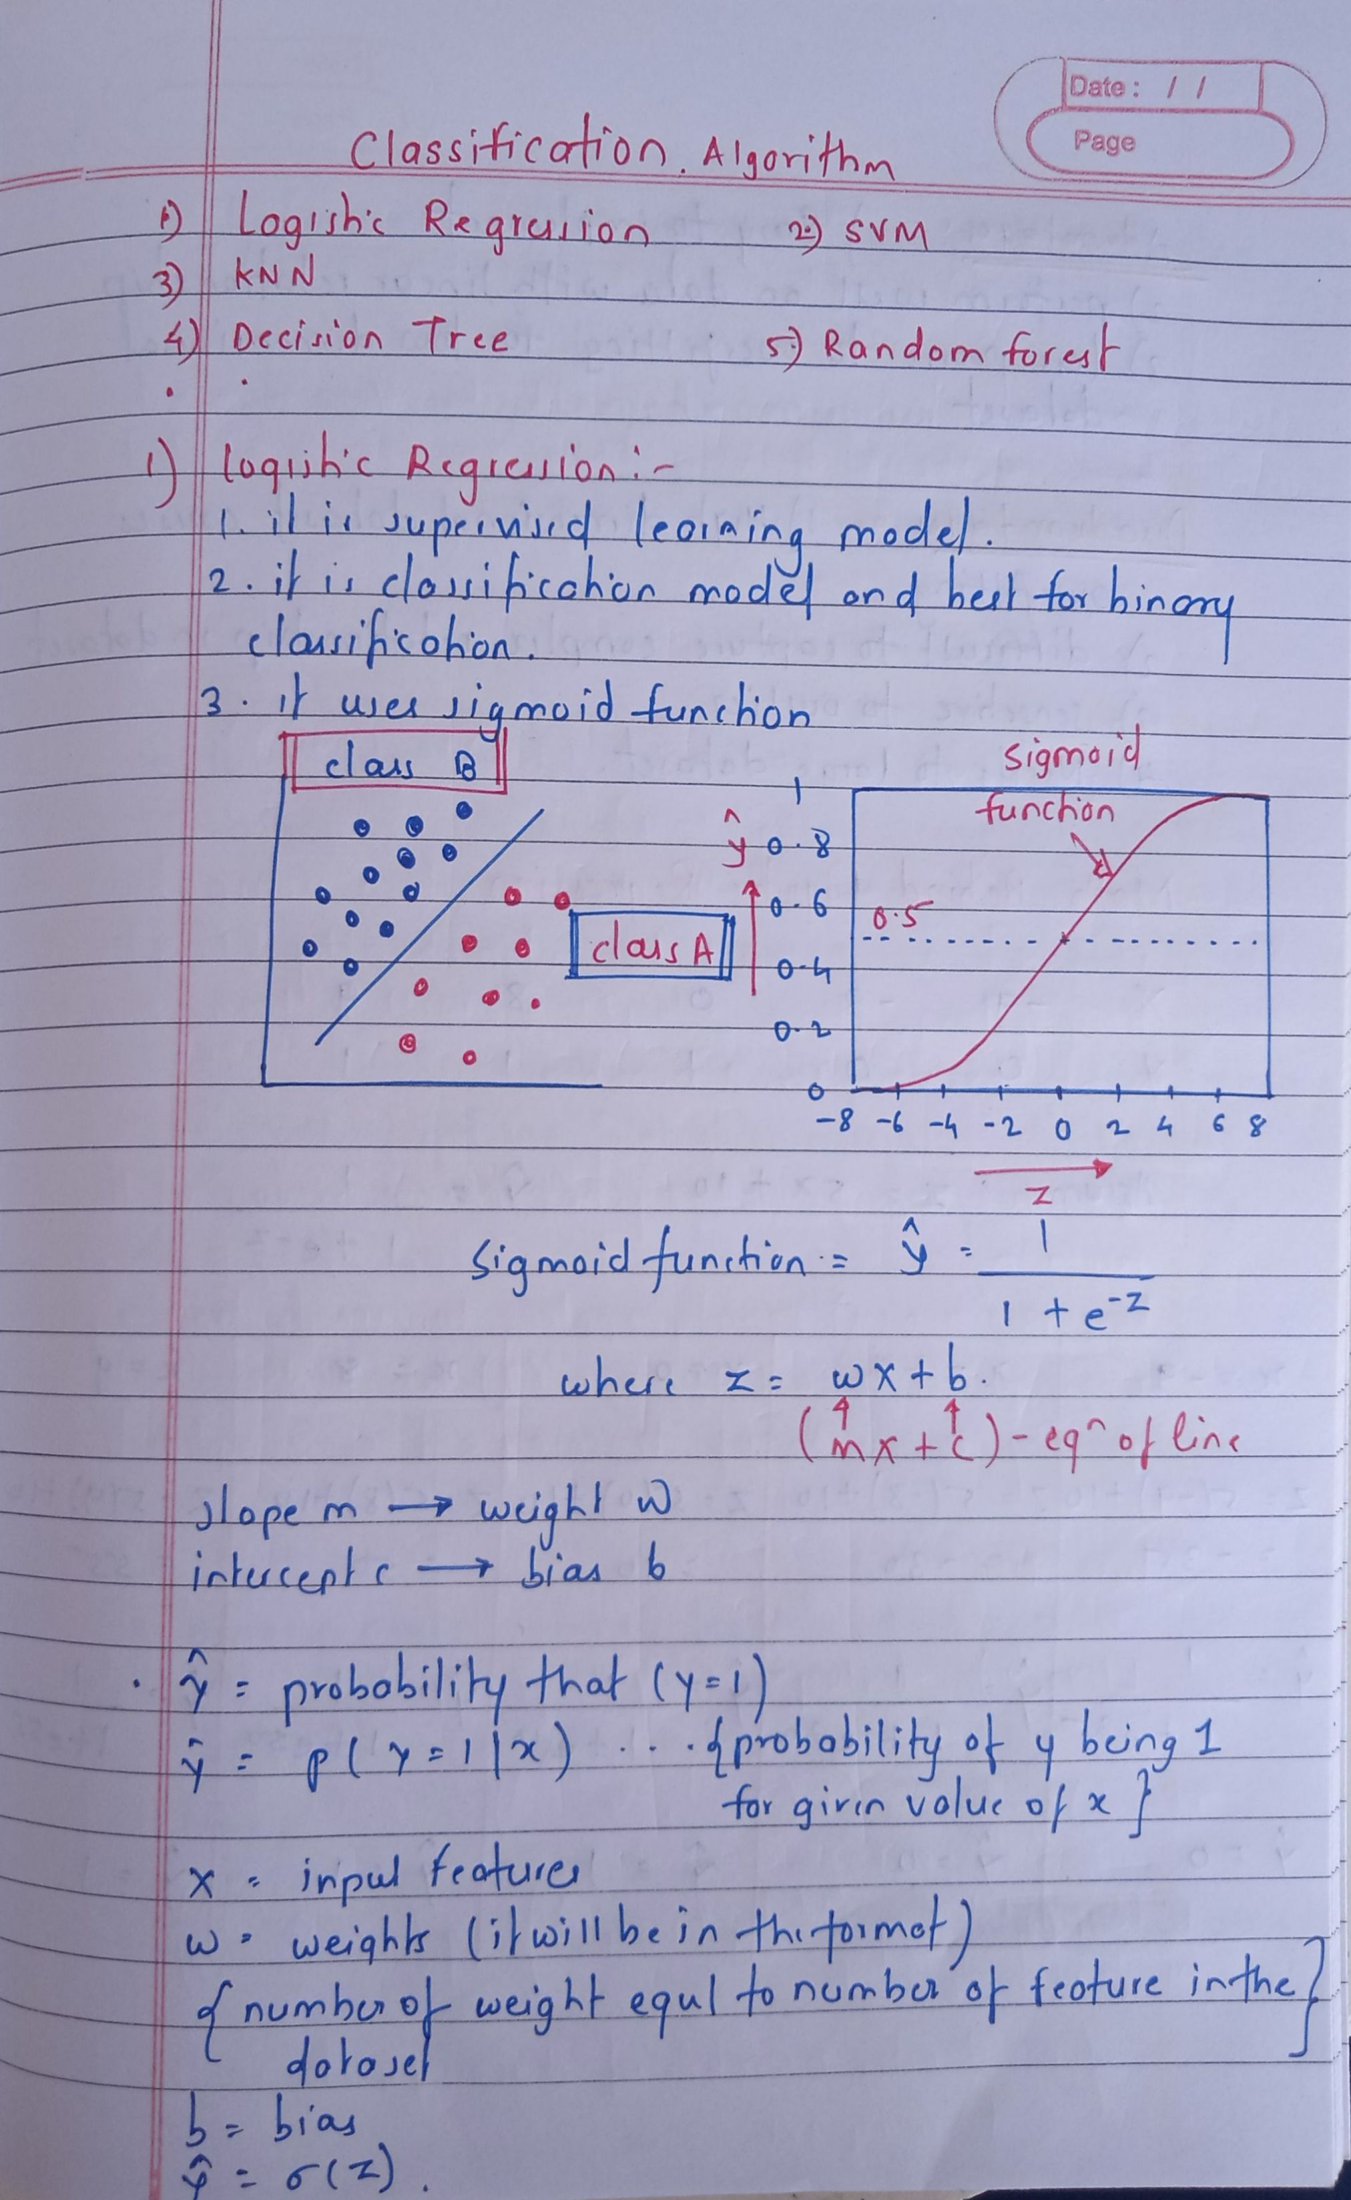 Date : / /
Page
Classification Algorithm
1) Logistic Regression 2) SVM
3) KNN
4) Decision Tree 5) Random forest
1) logistic Regression :-
1. it is supervised learning model.
2. it is classification model and best for binary
classification.
3. it uses sigmoid function
class B
class A
sigmoid
function
ŷ
1
0.8
0.6
0.5
0.4
0.2
0
-8 -6 -4 -2 0 2 4 6 8
z
Sigmoid function = ŷ = 1
1 + e^-z
where z = wx + b.
(mx + c) - eqⁿ of line
slope m → weight w
intercept c → bias b
. ŷ = probability that (y=1)
ŷ = p( y = 1 | x) ... {probability of y being 1
for given value of x }
x = input features
w = weights (it will be in the format)
{ number of weight equl to number of feature in the }
dataset
b = bias
ŷ = σ(z).